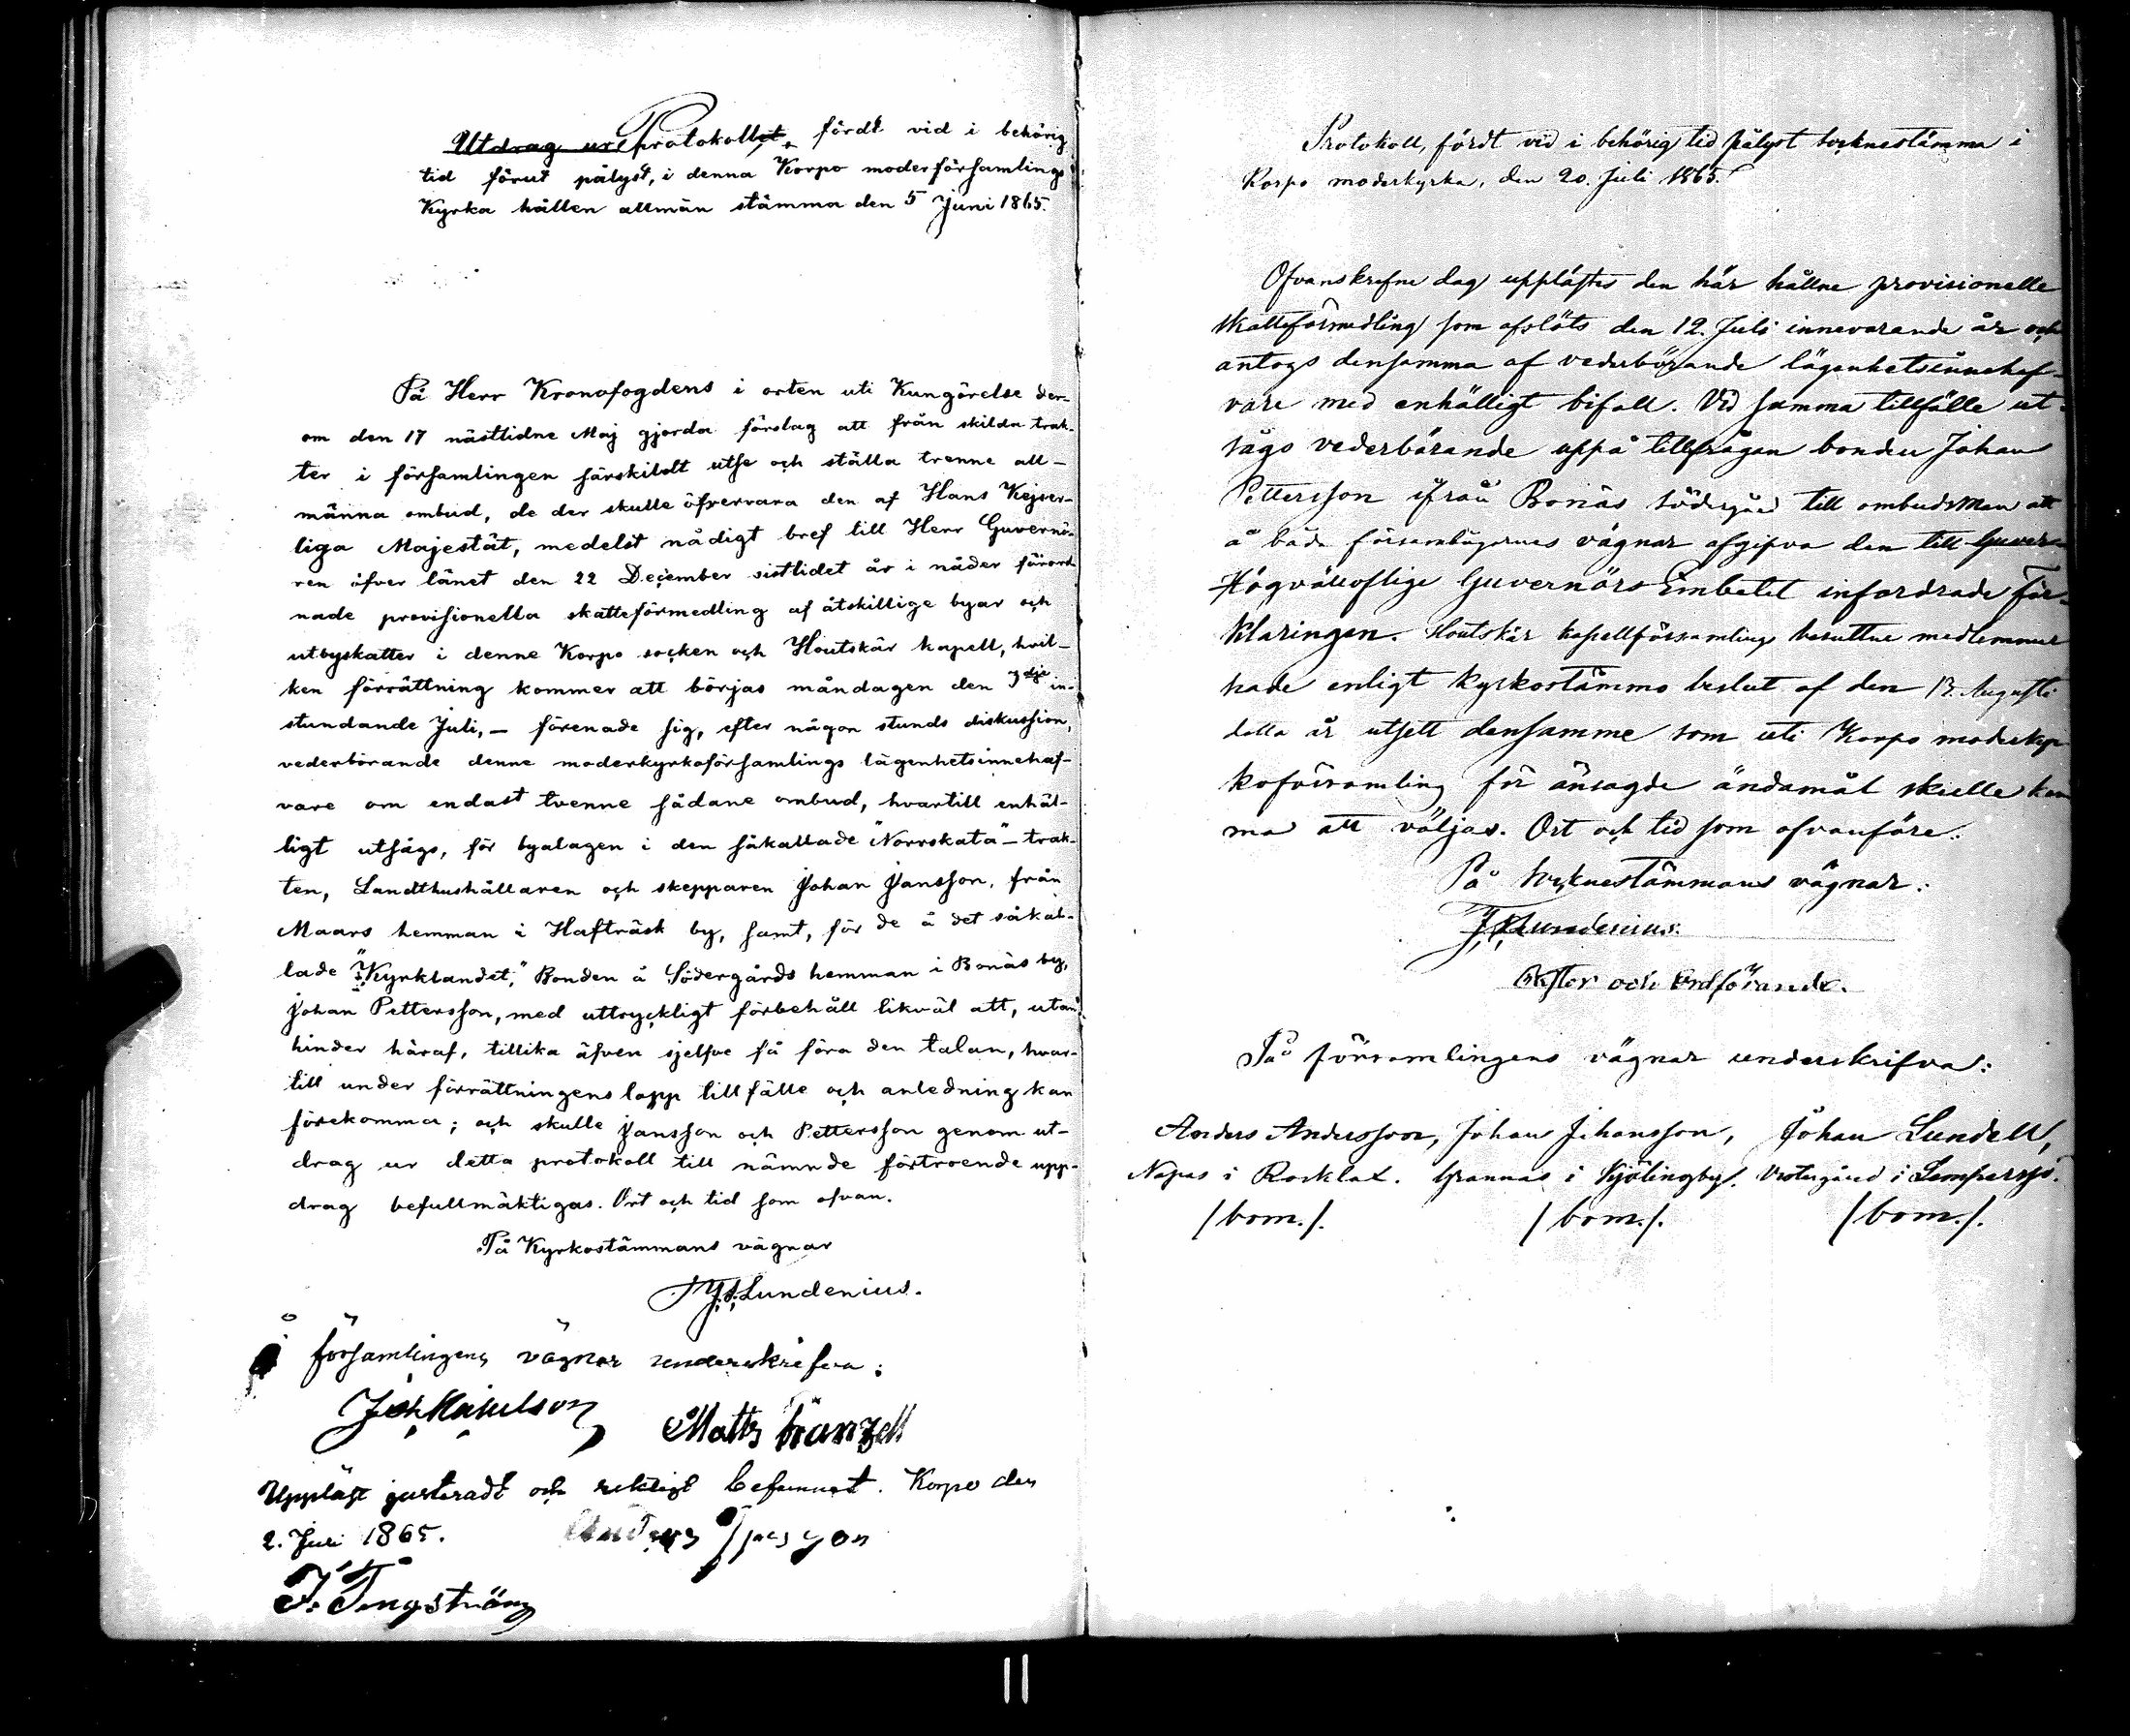 Utdrag ur Protokollet, fördt vid i behörig
tid förut pålyst, i denna Korpo moderförsamlings
Kyrka hållen allmän stämma den 5 Juni 1865.
På Herr Kronofogdens i orten uti Kungörelse der-
om den 17 nästlidne Maj gjorda förslag att från skilda trak-
ter i församlingen särskildt utse och ställa trenne all-
männa ombud, de der skulle öfvervara den af Hans Kejser-
liga Majestät, medelst nådigt bref till Herr Guvernö-
ren öfver länet den 22 December sistlidet år i nåder förord-
nade provisionella skatteförmedling af åtskillige byar och
utbyskatter i denne Korpo socken och Houtskär kapell, hvil-
ken förrättning kommer att börjas måndagen den 3dje in-
stundande Juli, — förenade sig, efter någon stunds diskussion,
vederbörande denne moderkyrkoförsamlings lägenhetsinnehaf-
vare om endast tvenne sådane ombud, hvartill enhäl-
ligt utsågs, för byalagen i den såkallade "Norrskata"-trak-
ten, Landthushållaren och skepparen Johan Jansson, från
Maars hemman i Hafträsk by, samt, för de å det såkal-
lade "Kyrklandet," Bonden å Södergårds hemman i Bonäs by,
Johan Pettersson, med uttryckligt förbehåll likväl att, utan
hinder häraf, tillika äfven sjelfve få föra den talan, hvar-
till under förrättningens lopp tillfälle och anledning kan
förekomma; och skulle Jansson och Pettersson genom ut-
drag ur detta protokoll till nämnde förtroende upp-
drag befullmäktigas. Ort och tid som ofvan.
På Kyrkostämmans vägnar
Lundenius.
Å församlingens vägnar underskrifva:
Matts Franzell
Uppläst justeradt och riktigt befunnet. Korpo den
2. Juli 1865. Anders
J. Tengström
Protokoll, fördt vid i behörig tid pålyst socknestämma i
Korpo moderkyrka, den 20. Juli 1865.
Ofvanskrefne dag upplästes den här hållne provisionelle
skatteförmedling som afslöts den 12. Juli innevarande år och
antogs densamma af vederbörande lägenhetsinnehaf-
vare med enhälligt bifall. Vid samma tillfälle ut-
sågs vederbörande uppå tillfrågan bonden Johan
Pettersson ifrån Bonäs Södergård till ombudsman att
å båda församlingarnes vägnar afgifva den till Guver-
Högvällofliga Guvernörs Embetet infordrade för-
klaringen. Houtskär kapellförsamlings besuttne medlemmar
hade enligt kyrkostämmo beslut af den 13. Augusti
detta år utsett densamme som uti Korpo moderkyr-
koförsamling för ansagde ändamål skulle kom
ma att väljas. Ort och tid som ofvanföre.
På socknestämmans vägnar:
Lundenius:
Pastor och Ordförande.
På församlingens vägnar underskrifva:
Anders Andersson, Johan Johansson, Johan Lundell,
Nepas i Rosklax. Grannas i Kjölingby. Vestergård i Lempersjö.
/bom./. /bom./. /bom./.
11